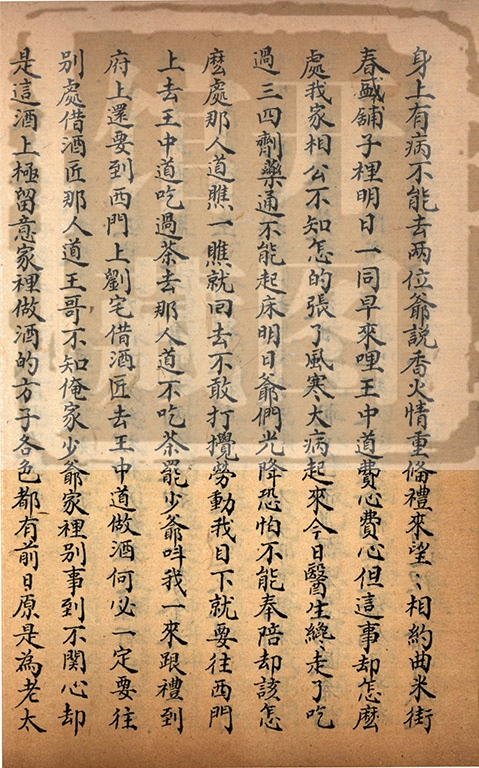 身上有病不能去两位爺説香火情重俻禮來望〻相約曲米街
春盛舖子裡明日一同早來哩王中道費心費心但這事却怎麽
處我家相公不知怎的張了風寒大病起來今日醫生纔走了吃
過三四劑藥通不能起床明日爺們光降恐怕不能奉陪却該怎
麽處那人道瞧一瞧就回去不敢打攪勞動我目下就要往西門
上去王中道吃過茶去那人道不吃茶罷少爺呌我一來跟禮到
府上還要到西門上劉宅借酒匠去王中道做酒何必一定要往
別處借酒匠那人道王哥不知俺家少爺家裡别事到不関心却
是這酒上極留意家裡做酒的方子各色都有前日原是為老太